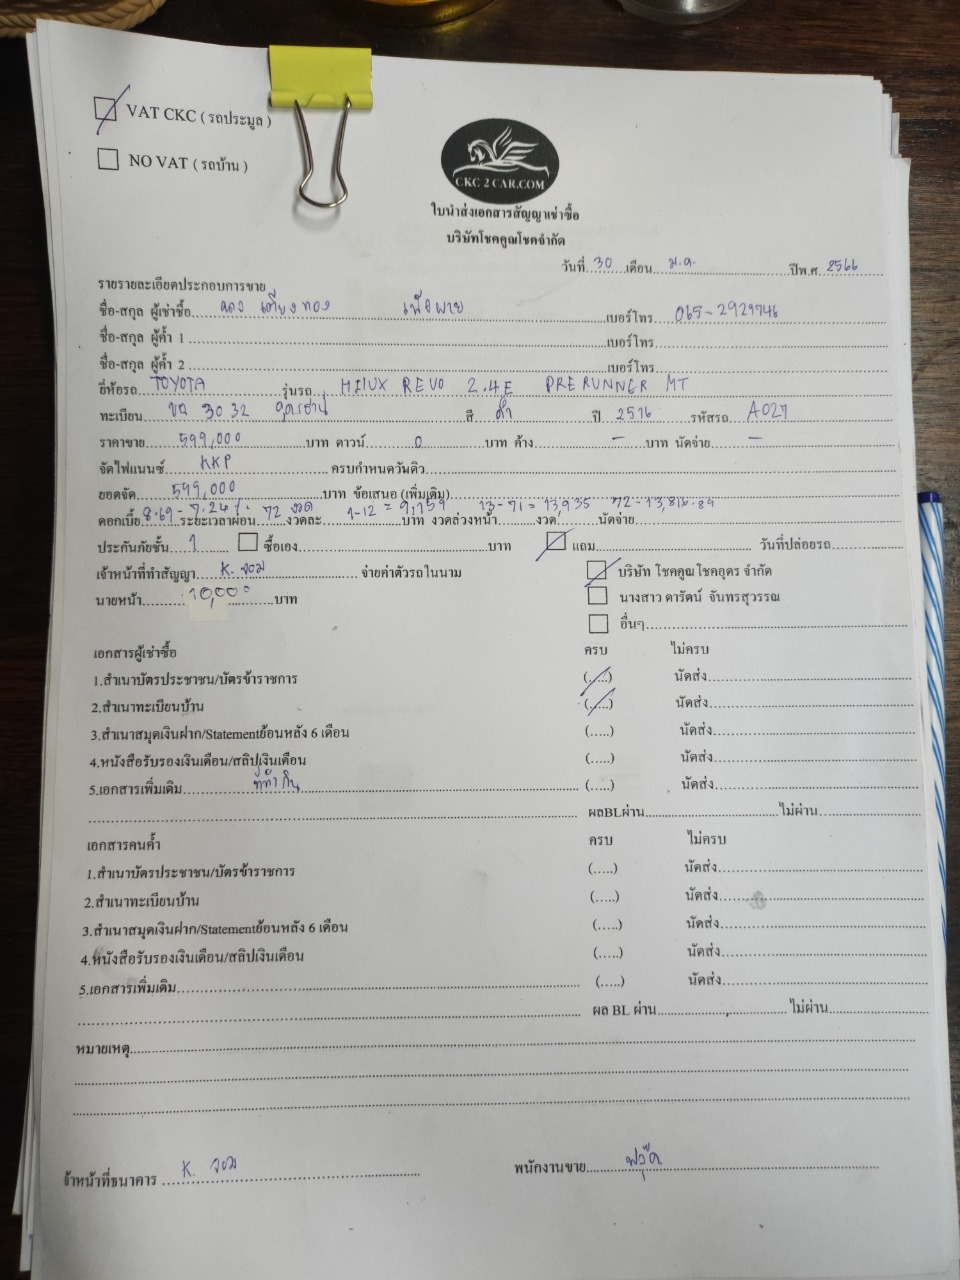 VAT CKC ( รถประมูล )
NO VAT ( รถบ้าน )
CKC 2 CAR.COM
ใบนำส่งเอกสารสัญญาเช่าซื้อ
บริษัทโชคคูณโชคจำกัด
วันที่ 30 เดือน ม.ค. ปีพ.ศ. 2566
รายรายละเอียดประกอบการขาย
ชื่อ-สกุล ผู้เช่าซื้อ เบอร์โทร 065-2929746
ชื่อ-สกุล ผู้ค้ำ 1 เบอร์โทร
ชื่อ-สกุล ผู้ค้ำ 2 เบอร์โทร
ยี่ห้อรถ TOYOTA รุ่นรถ HILUX REVO 2.4E PRERUNNER MT
ทะเบียน 3032 อุดรธานี สี ดำ ปี 2516 รหัสรถ A027
ราคาขาย 599,000 บาท ดาวน์ 0 บาท ค้าง - บาท นัดจ่าย -
จัดไฟแนนซ์ KKP ครบกำหนดวันดิว
ยอดจัด 599,000 บาท ข้อเสนอ (เพิ่มเติม)
ดอกเบี้ย 8.69 - 7.24% ระยะเวลาผ่อน 72 งวด งวดละ 1-12 = 9,159 บาท 13-71 = 13,935 72 - 13,816.89 งวดล่วงหน้า งวด นัดจ่าย
ประกันภัยชั้น 1 ซื้อเอง บาท แถม วันที่ปล่อยรถ
เจ้าหน้าที่ทำสัญญา K. จอม จ่ายค่าตัวรถในนาม บริษัท โชคคูณโชคอุดร จำกัด
นายหน้า 10,000 บาท นางสาว ดารัตน์ จันทรสุวรรณ
อื่นๆ
เอกสารผู้เช่าซื้อ ครบ ไม่ครบ
1.สำเนาบัตรประชาชน/บัตรข้าราชการ (.....) นัดส่ง
2.สำเนาทะเบียนบ้าน (.....) นัดส่ง
3.สำเนาสมุดเงินฝาก/Statementย้อนหลัง 6 เดือน (.....) นัดส่ง
4.หนังสือรับรองเงินเดือน/สลิปเงินเดือน (.....) นัดส่ง
5.เอกสารเพิ่มเติม ที่ทำกิน (.....) นัดส่ง
ผลBLผ่าน ไม่ผ่าน
เอกสารคนค้ำ ครบ ไม่ครบ
1.สำเนาบัตรประชาชน/บัตรข้าราชการ (.....) นัดส่ง
2.สำเนาทะเบียนบ้าน (.....) นัดส่ง
3.สำเนาสมุดเงินฝาก/Statementย้อนหลัง 6 เดือน (.....) นัดส่ง
4.หนังสือรับรองเงินเดือน/สลิปเงินเดือน (.....) นัดส่ง
5.เอกสารเพิ่มเติม (.....) นัดส่ง
ผล BL ผ่าน ไม่ผ่าน
หมายเหตุ
จ้าหน้าที่ธนาคาร K. จอม พนักงานขาย